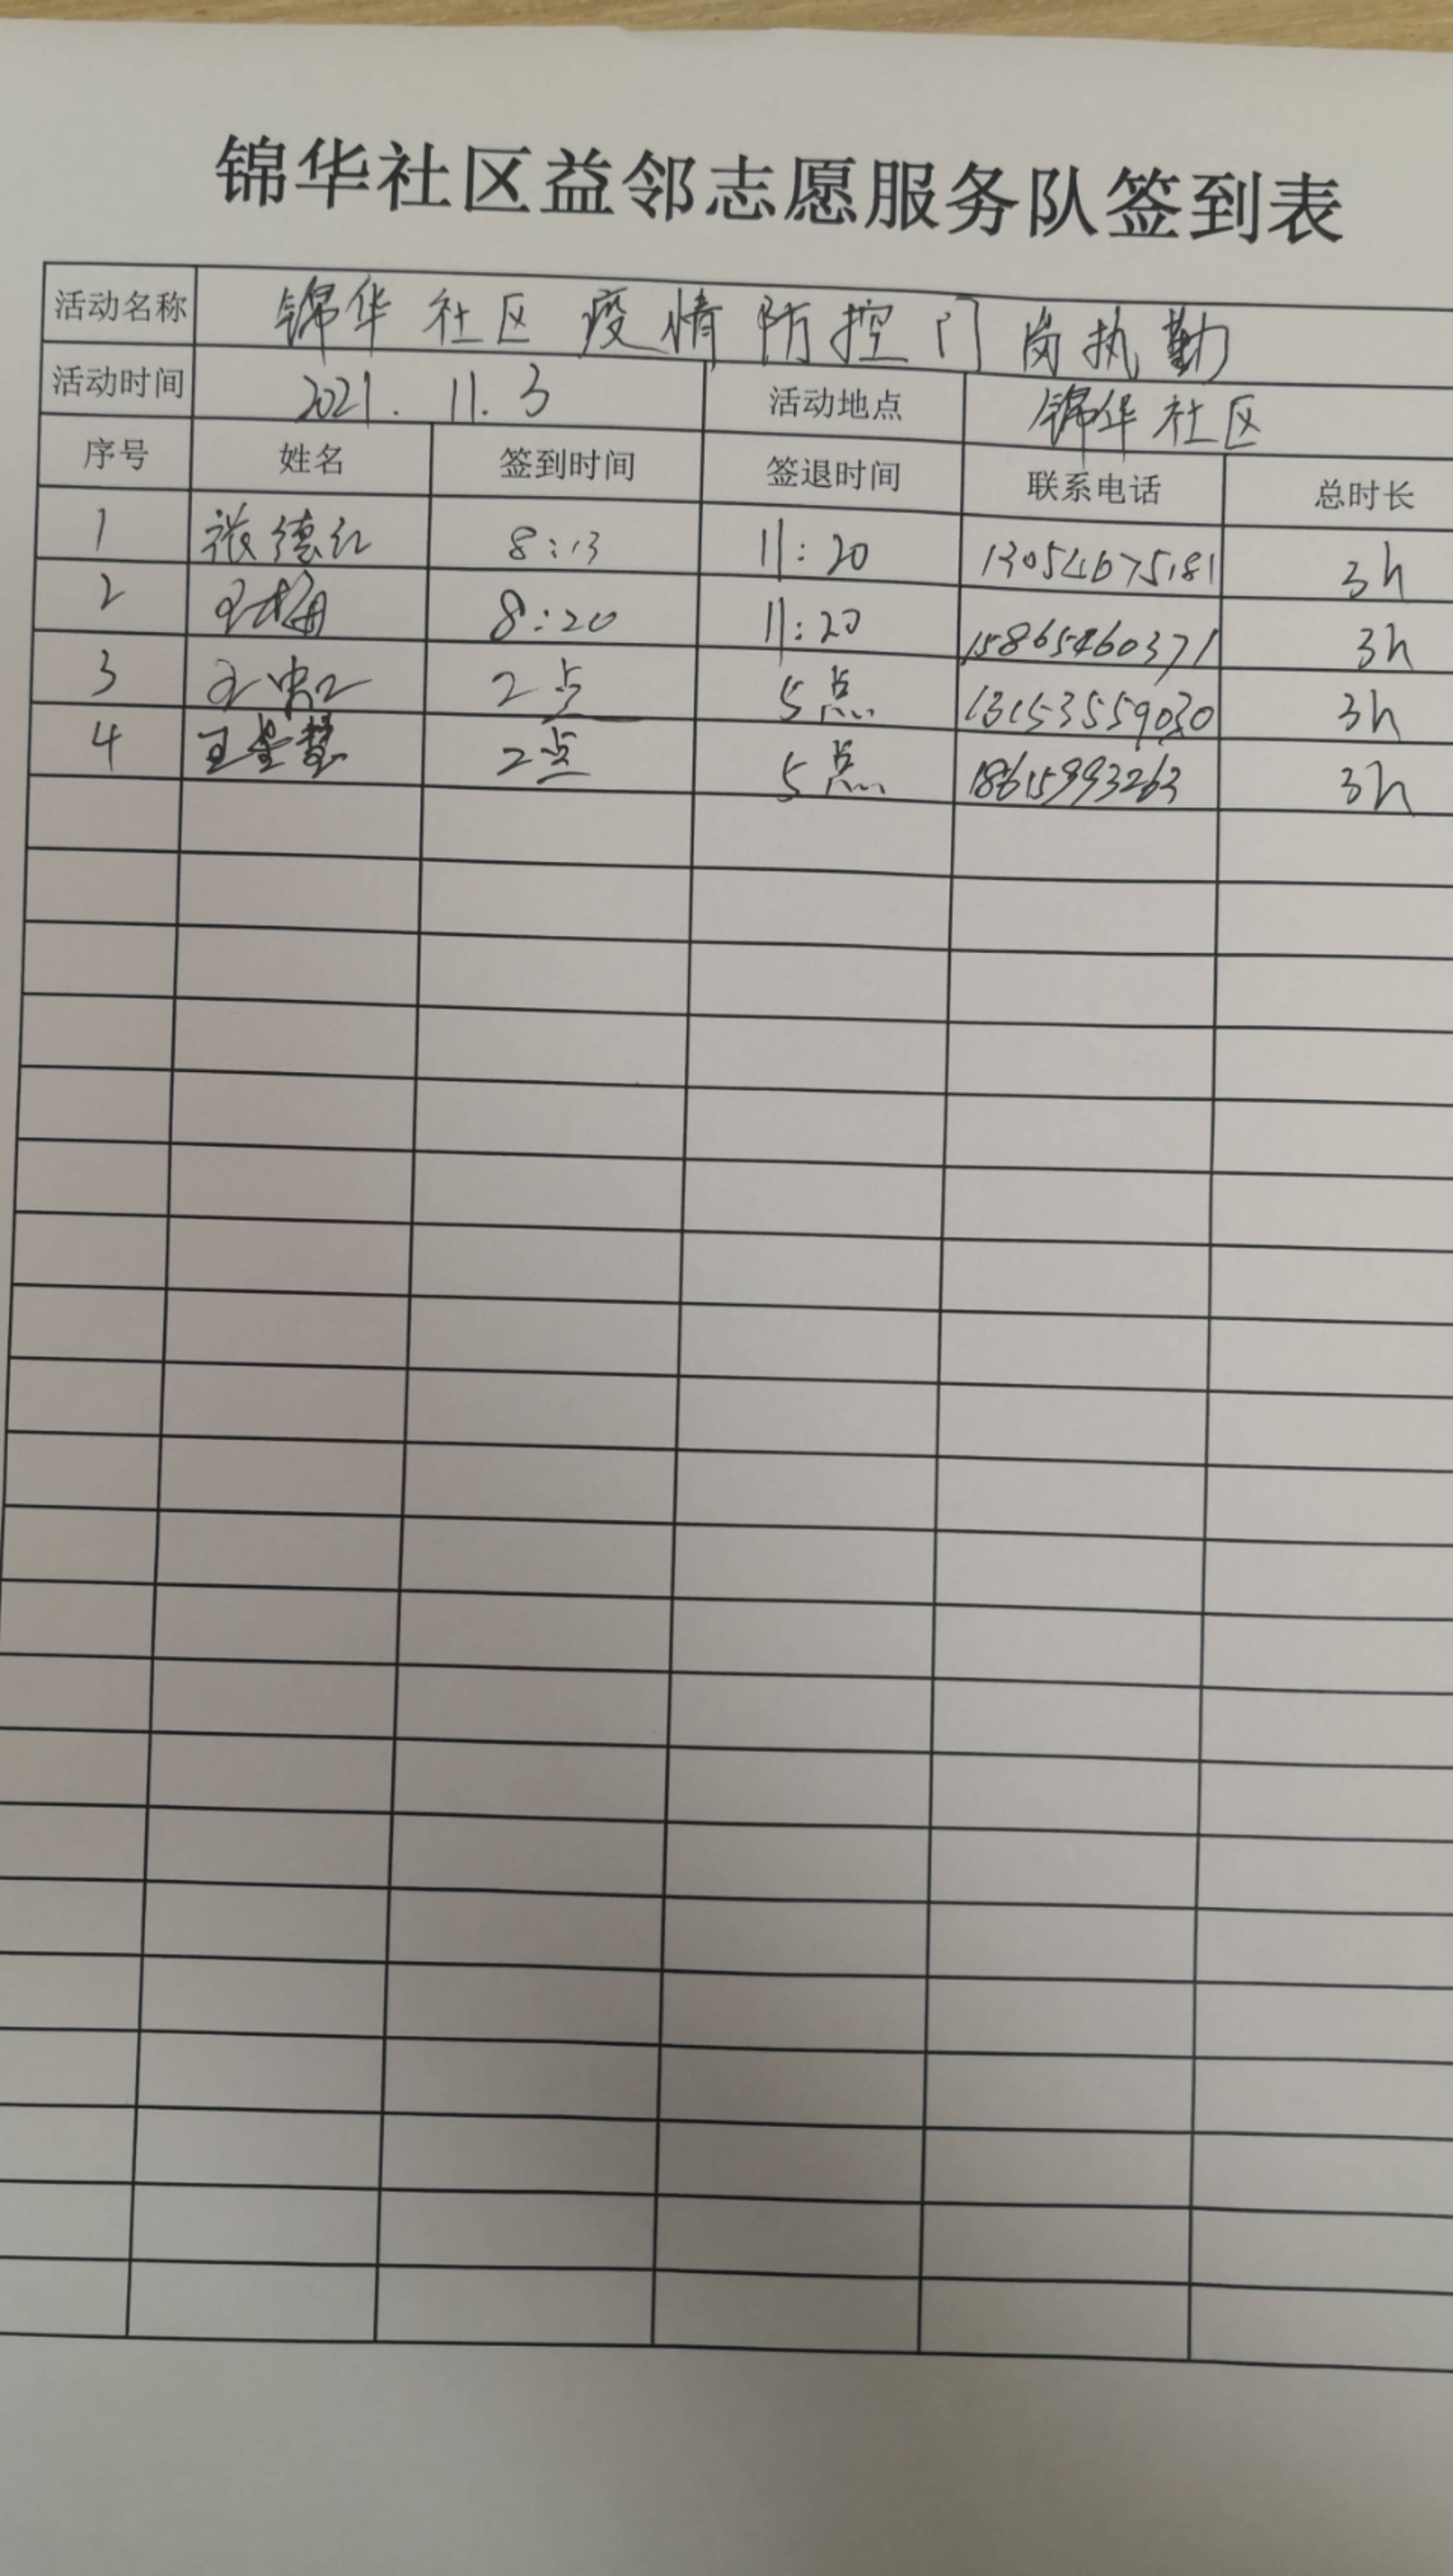 锦华社区益邻志愿服务队签到表
活动名称 锦华社区疫情防控门岗执勤
活动时间 2021.11.3 活动地点 锦华社区
序号 姓名 签到时间 签退时间 联系电话 总时长
1 张德红 8:13 11:20 13054675181 3h
2 王梅 8:20 11:20 15865460371 3h
3 2点 5点 13153559030 3h
4 2点 5点 18615993263 3h